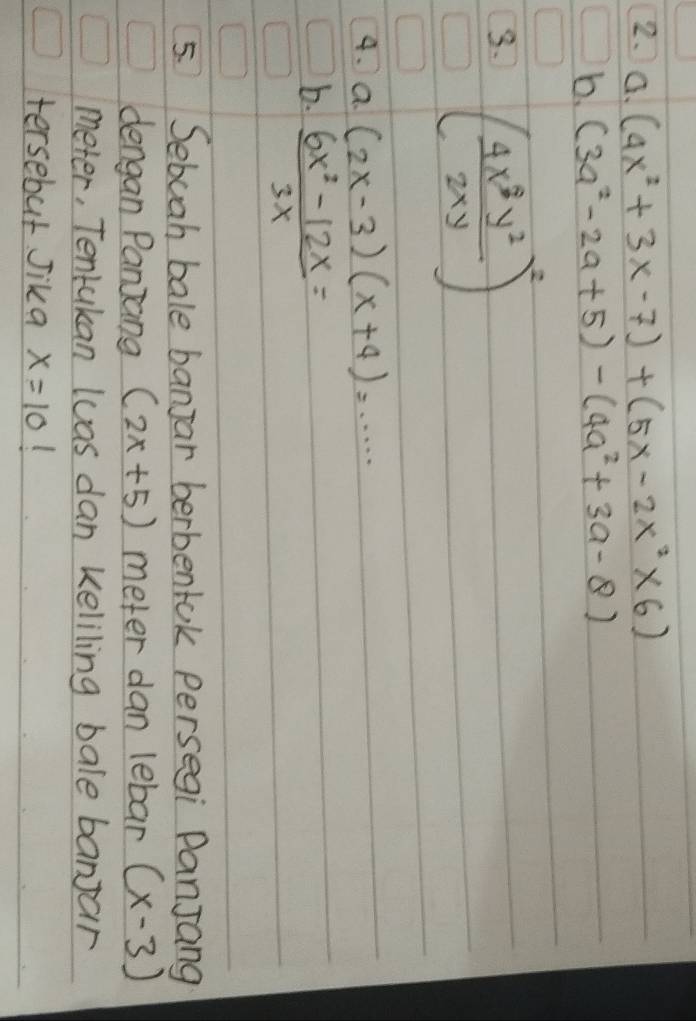 2. a. (4x² + 3x - 7) + (5x - 2x² × 6)
b. (3a² - 2a + 5) - (4a² + 3a - 8)
3. (4x³y² / 2xy)²
4. a. (2x - 3) (x + 4) = .....
b. 6x² - 12x / 3x =
5. Sebuah bale banjar berbentuk persegi panjang
dengan Panjang (2x + 5) meter dan lebar (x - 3)
meter. Tentukan luas dan keliling bale banjar
tersebut Jika x = 10!